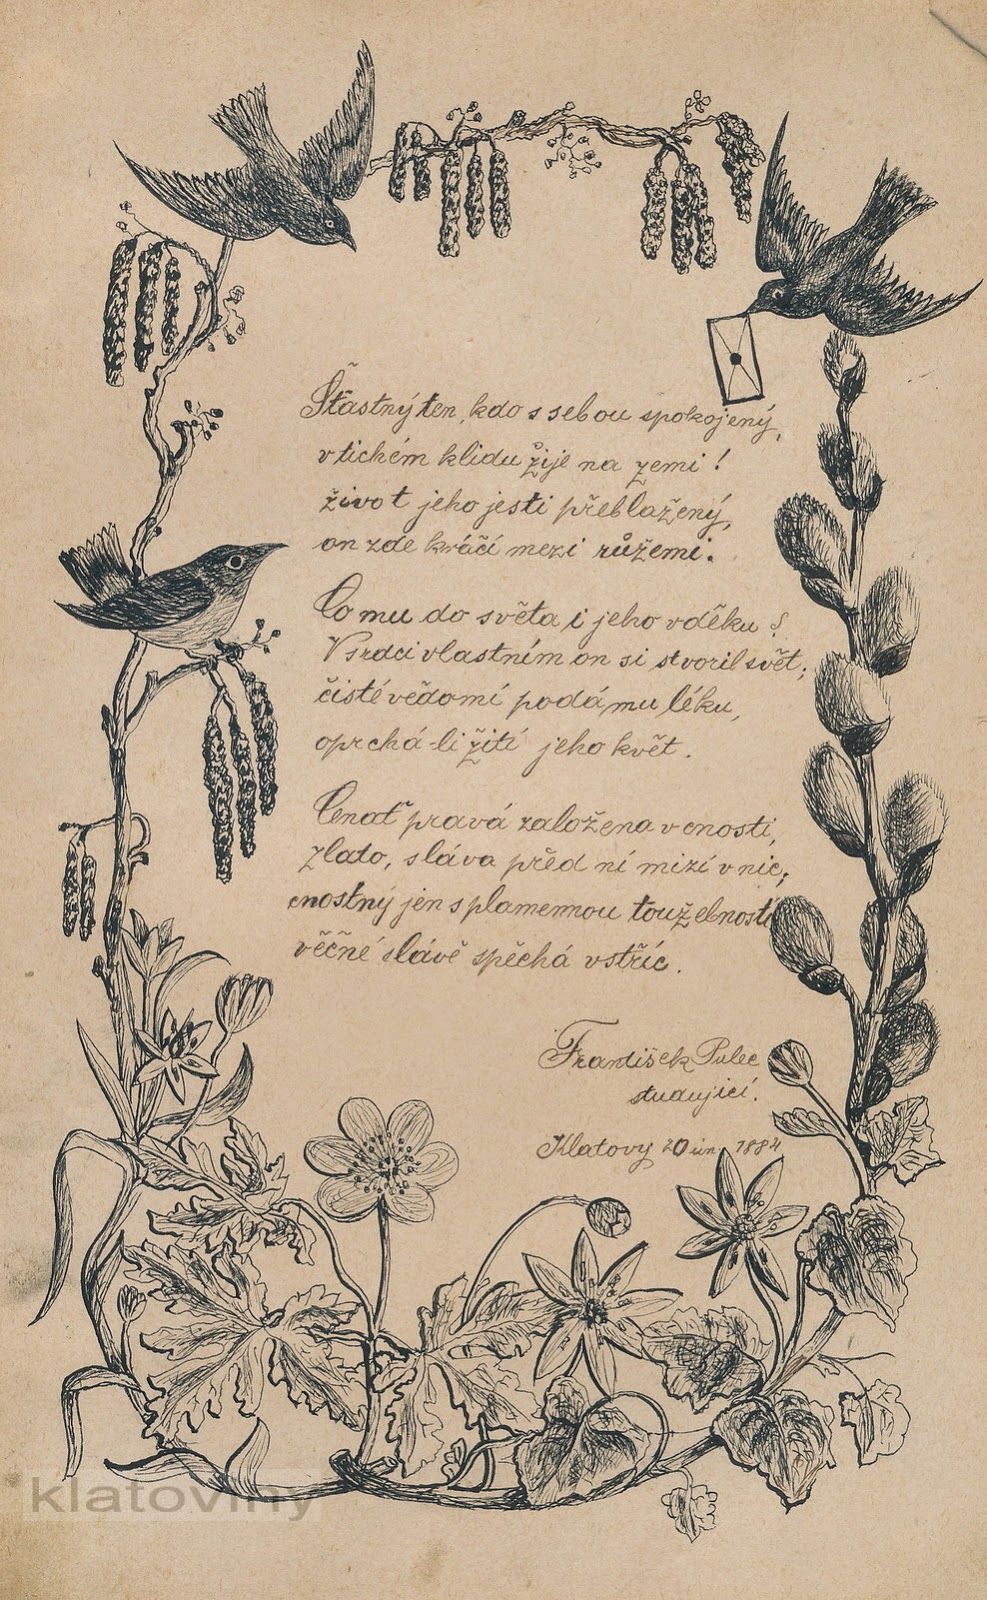 Šťastný ten, kdo s sebou spokojený,
v tichém klidu žije na zemi!
život jeho jesti přeblažený,
on zde kráčí mezi růžemi.
Co mu do světa i jeho vděku?
V srdci vlastním on si stvořil svět;
čisté vědomí podá mu léku,
oprchá-li žití jeho květ.
Cnosť pravá založena v cnosti,
zlato, sláva před ní mizí v nic;
cnostný jen s plamennou touželností
věčné slávě spěchá vstříc.
František Pulec
studující.
Klatovy 20 1884
klatoviny